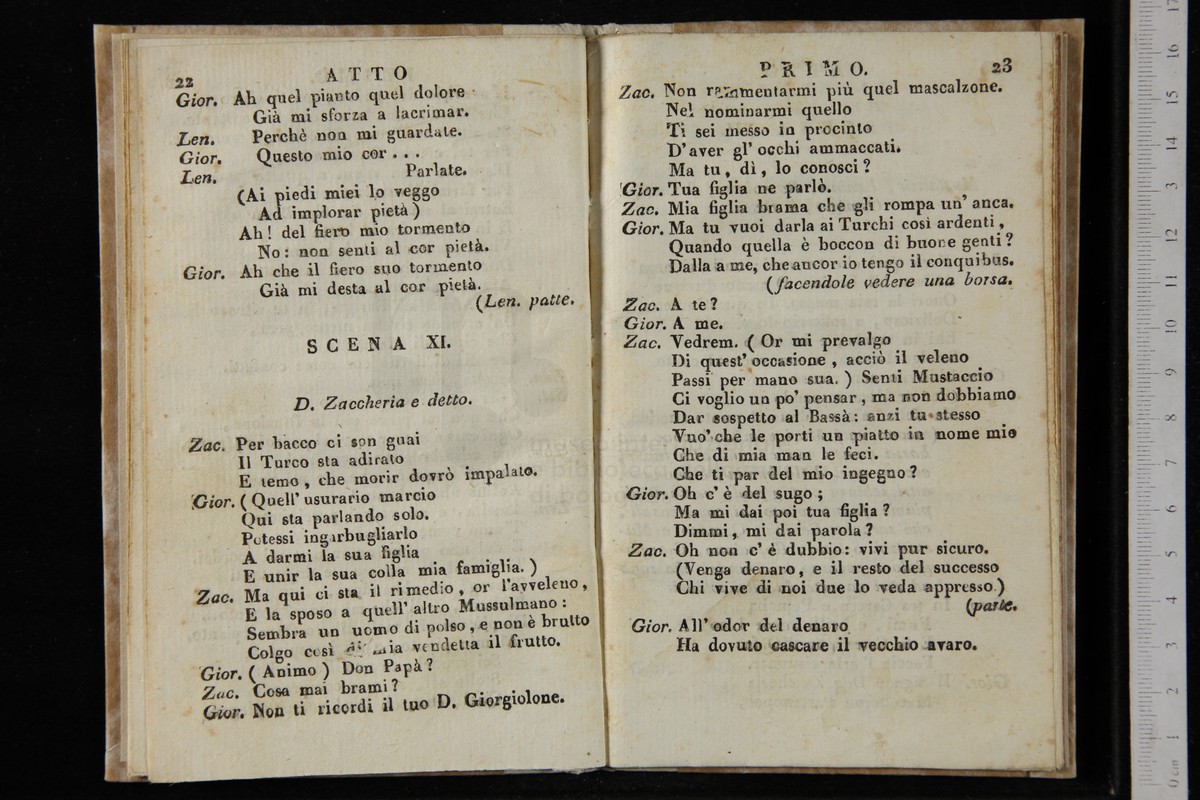 22
ATTO
Gior. Ah quel pianto quel dolore
Già mi sforza a lacrimar.
Len. Perchè non mi guardate.
Gior. Questo mio cor . . .
Len. Parlate.
(Ai piedi miei lo veggo
Ad implorar pietà )
Ah! del fiero mio tormento
No: non senti al cor pietà.
Gior. Ah che il fiero suo tormento
Già mi desta al cor pietà.
(Len. patte.
SCENA XI.
D. Zaccheria e detto.
Zac. Per bacco ci son guai
Il Turco sta adirato
E temo , che morir dovrò impalato.
Gior. ( Quell' usurario marcio
Qui sta parlando solo.
Potessi ingarbugliarlo
A darmi la sua figlia
E unir la sua colla mia famiglia. )
Zac. Ma qui ci sta il rimedio , or l'avveleno ,
E la sposo a quell' altro Mussulmano :
Sembra un uomo di polso , e non è brutto
Colgo così di mia vendetta il frutto.
Gior. ( Animo ) Don Papà ?
Zac. Cosa mai brami ?
Gior. Non ti ricordi il tuo D. Giorgiolone.
PRIMO.
23
Zac. Non rammentarmi più quel mascalzone.
Nel nominarmi quello
Ti sei messo in procinto
D'aver gl' occhi ammaccati.
Ma tu, dì, lo conosci ?
Gior. Tua figlia ne parlò.
Zac. Mia figlia brama che gli rompa un' anca.
Gior. Ma tu vuoi darla ai Turchi così ardenti ,
Quando quella è boccon di buone genti ?
Dalla a me, che ancor io tengo il conquibus.
(facendole vedere una borsa.
Zac. A te ?
Gior. A me.
Zac. Vedrem. ( Or mi prevalgo
Di quest' occasione , acciò il veleno
Passi per mano sua. ) Senti Mustaccio
Ci voglio un po' pensar , ma non dobbiamo
Dar sospetto al Bassà: anzi tu stesso
Vuo' che le porti un piatto in nome mio
Che di mia man le feci.
Che ti par del mio ingegno ?
Gior. Oh c' è del sugo ;
Ma mi dai poi tua figlia ?
Dimmi, mi dai parola ?
Zac. Oh non c' è dubbio: vivi pur sicuro.
(Venga denaro, e il resto del successo
Chi vive di noi due lo veda appresso )
(parte.
Gior. All' odor del denaro
Ha dovuto cascare il vecchio avaro.